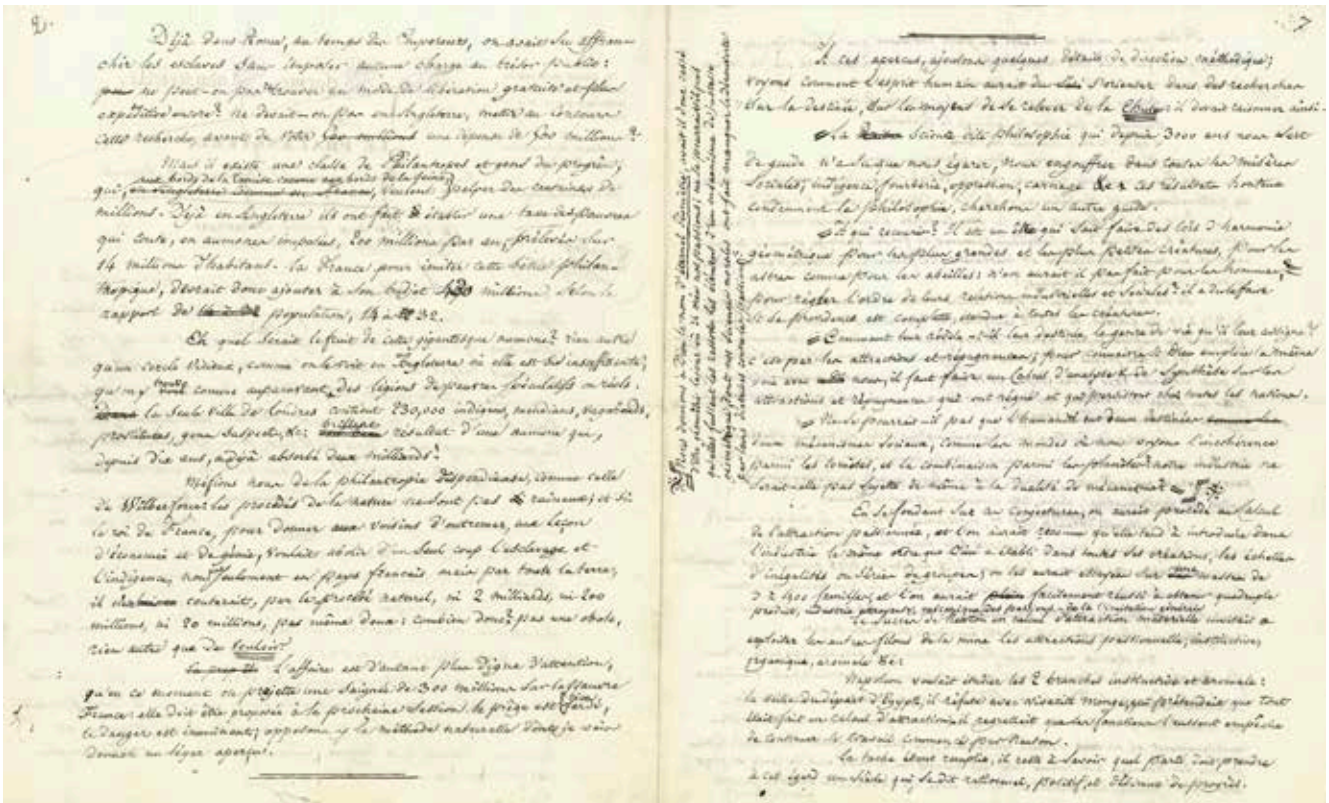 2.
Déjà dans Rome, au temps des Empereurs, on avait su affran-
chir les esclaves sans imposer aucune charge au trésor public:
ne peut-on pas trouver un mode de libération gratuite et plus
expéditive encore? ne devait-on pas en Angleterre, mettre au concours
cette recherche, avant de voter une dépense de 500 millions?
Mais il existe une classe de Philantropes et gens du progrès,
aux bords de la Tamise comme aux bords de la Seine
qui, veulent palper des centaines de
millions. Déjà en Angleterre ils ont fait établir une taxe des pauvres
qui coute, en aumones imposées, 200 millions par an, prélevés sur
14 millions d'habitans. la France pour imiter cette bêtise philan-
tropique, devrait donc ajouter à son budjet millions selon le
rapport de population, 14 à 32.
Eh quel serait le fruit de cette gigantesque aumone? rien autre
qu'un cercle vicieux, comme on le voit en Angleterre où elle est très insuffisante,
qu'on y trouve comme auparavant, des légions de pauvres spéculatifs ou réels.
la seule ville de Londres contient 230,000 indigens, mendians, vagabonds,
prostituées, gens suspects, &c: brillant résultat d'une aumone qui,
depuis dix ans, a déjà absorbé deux milliards!
Méfions nous de la philantropie dispendieuse, comme celle
de Wilberforce: les procédés de la nature ne sont pas ruineux; et si
le roi de France, pour donner aux voisins d'outremer, une leçon
d'économie et de génie, voulait abolir d'un seul coup l'esclavage et
l'indigence, non seulement en pays français mais par toute la terre,
il en couterait, par le procédé naturel, ni 2 milliards, ni 200
millions, ni 20 millions, pas même deux: combien donc? pas une obole,
rien autre que de vouloir.
L'affaire est d'autant plus digne d'attention,
qu'en ce moment on projette une saignée de 300 millions sur la pauvre
France: elle doit être proposée à la prochaine session. le piège est
le danger est imminent; opposons y la méthode naturelle dont je vais
donner un léger aperçu.
7
A ces aperçus, ajoutons quelques détails de direction méthodique;
voyons comment l'esprit humain aurait du s'orienter dans des recherches
sur la destinée, sur les moyens de se relever de la chute: il devait raisonner ainsi.
La science dite philosophie qui depuis 3000 ans nous sert
de guide n'a su que nous égarer, nous engouffrer dans toutes les misères
sociales, indigence, fourberie, oppression, carnage &c; ces résultats honteux
condamnent la philosophie, cherchons un autre guide.
A qui recourir? Il est un être qui sait faire des lois d'harmonie
géométrique pour les plus grandes et les plus petites créatures, pour les
astres comme pour les abeilles: n'en aurait il pas fait pour les hommes,
pour régler l'ordre de leurs relations industrielles et sociales? il a du le faire
si la providence est complette, étendue à toutes les créatures.
Comment leur révèle-t-il leur destinée, le genre de vie qu'il leur assigne?
c'est par les attractions et répugnances; pour connaitre si Dieu emploie la même
voie avec nous, il faut faire un Calcul d'analyse & de Synthèse sur les
attractions et répugnances qui ont régné et qui persistent chez toutes les nations.
Ne se pourrait-il pas que l'humanité eut deux destinées
deux mécanismes sociaux, comme les mondes où nous voyons l'incohérence
parmi les comètes, et la combinaison parmi les planètes? notre industrie ne
serait-elle pas sujette de même à la dualité de mécanisme?
En se fondant sur ces conjectures, on aurait procédé au Calcul
de l'attraction passionnée, et l'on aurait reconnu qu'elle tend à introduire dans
l'industrie le même ordre que Dieu a établi dans toutes ses créations, les échelles
d'inégalités ou séries de groupes; on les aurait essayées sur une masse de
3 à 400 familles, et l'on aurait facilement réussi à obtenir quadruple
produit,
Le succès de Newton en calcul d'attraction matérielle invitait à
exploiter les autres filons de la mine les attractions passionnelle, instinctive,
organique, aromale &c:
Napoléon voulait étudier les 2 branches instinctive et aromale:
la veille du départ d'Egypte, il réfuta avec vivacité Monge, qui prétendait que tout
était fait en calcul d'attraction: il regrettait que des fonctions l'eussent empêché
de continuer le travail commencé par Newton.
La tache étant remplie, il reste à savoir quel parti doit prendre
à cet égard un siècle qui se dit rationnel, positif, et désireux de progrès.